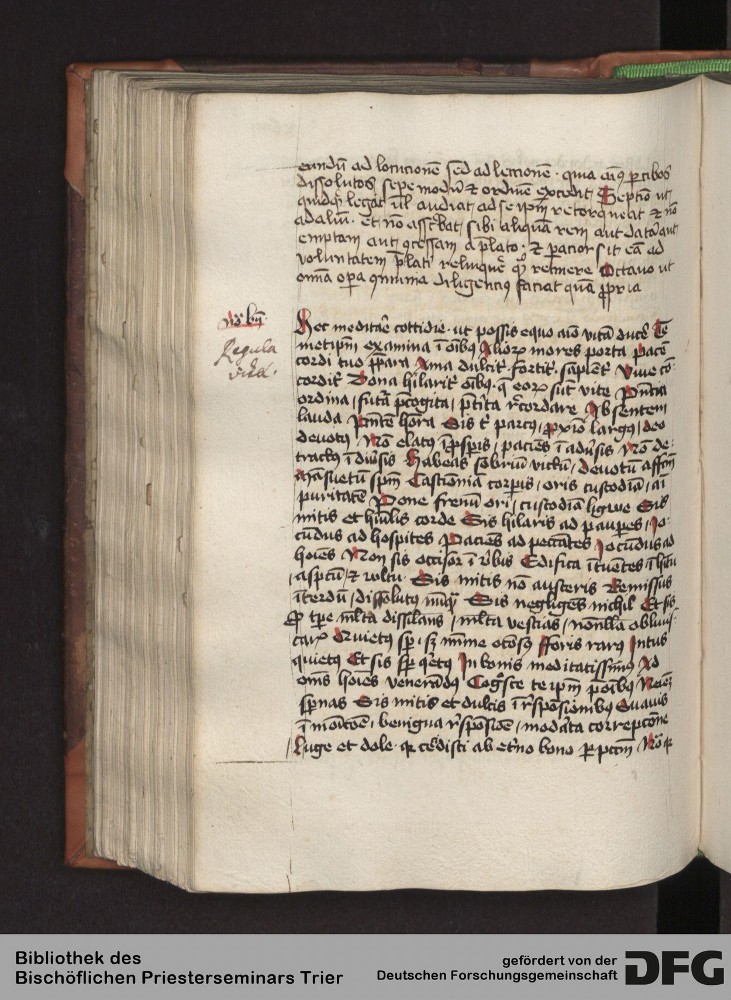 eundū ad locucionē sed ad leccionē · quia
dissolutos sepe modū & ordinē excedit Septīo ut
quidq̄d legat ul̄ audiat ad se ip̄m retorqueat & nō
ad aliū · Et nō ascͥbat sibi aliquā rem aut datā aut
emptam aut ꝯcessam a p̄lato · & pacior sit eā ad
voluntatem p̄lati relinquē̄ qͣ retinere Octauo ut
omīa opa ꝯmunia diligencius faciat quā ꝓpria
Nō bn̄
Regula
Hec meditar̄ cottidie · ut possis equo aīo vitā ducē Te
metip̄m examina ī oībꝰ Alioꝝ mores porta pacē
cordi tuo p̄para Ama dulcit͛ · fortit͛ · sapīent͛ Viue cō
cordit͛ Dona hilarit͛ oībꝰ · q̄ eoꝝ sūt vite Pn̄tia
ordina / futā p̄cogita / p̄tīta r̄cordare Absentem
lauda hōra Sis tͥ parcꝰ / ꝓxīo largꝰ / deo
deuotꝰ Nō elatꝰ ī ꝓsp̄is / paciēs ī adūsis Nō de
tractꝰ ī diūsis Habeas sobriū victū / deuotū affc̄m
Māsuetū spm̄ Castionīā corpīs / oris custodiā / aī
puritatē Pone frenū ori / custodiā ligwe Sis
mitis et hūilis corde Sis hilaris ad paupes / Jo
cūdus ad hospites Paciēs ad peccātes Jocūdus ad
hoīes Non sis occisor ī v̄bis Edifica ītuētes ī hītu
/ asp̄ctu / & vultu · Sis mitis nō austeris Remissus
īterdū / dissolutus nūqͣ Sis negligēs nichil Et sis
ꝑ tp̄e ml̄ta dissilans / ml̄ta nesciās / nōnulla obliuis
carꝰ quietꝰ sp̄ · sꝫ mīme otōsꝰ fforis rarꝰ Jntus
quietꝰ Et sis sp̄ qͥetꝰ Jn bonis meditatissimꝰ Ad
oms̄ hoīes venerādꝰ Cogͦsce te ip̄m p̄ oībꝰ Nemīē
sp̄nas Sis mitis et dulcis ī r̄sponsionibꝰ Suauis
ī moīcōe / benigna r̄sposiōe / modāta correpcōne
/ Luge et dole · qꝛ cecidisti ab et̄no bono ꝑ pctm̄
Bibliothek des
Bischöflichen Priesterseminars Trier
gefördert von der
Deutschen Forschungsgemeinschaft
DFG